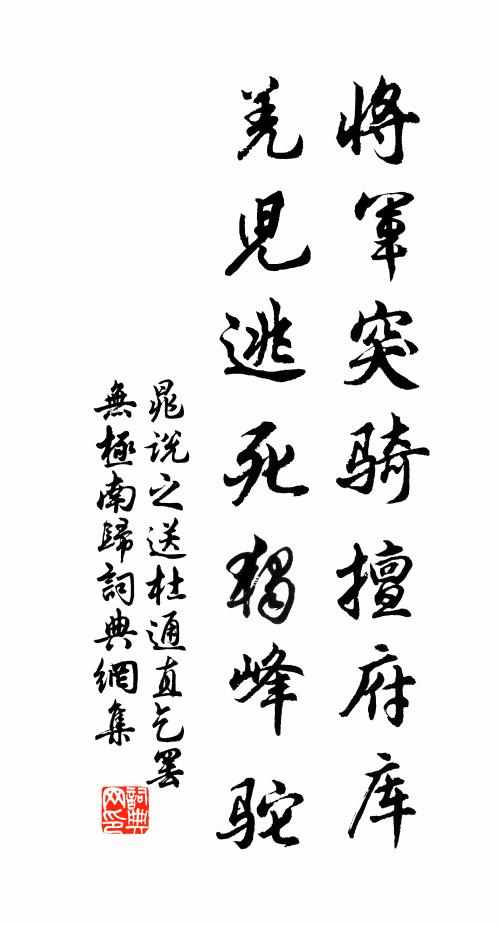 將軍突骑擅府库
羌児逃死独峰駝
晁説之送杜通直乞罢
無極南歸詞典網集
詞典
网印